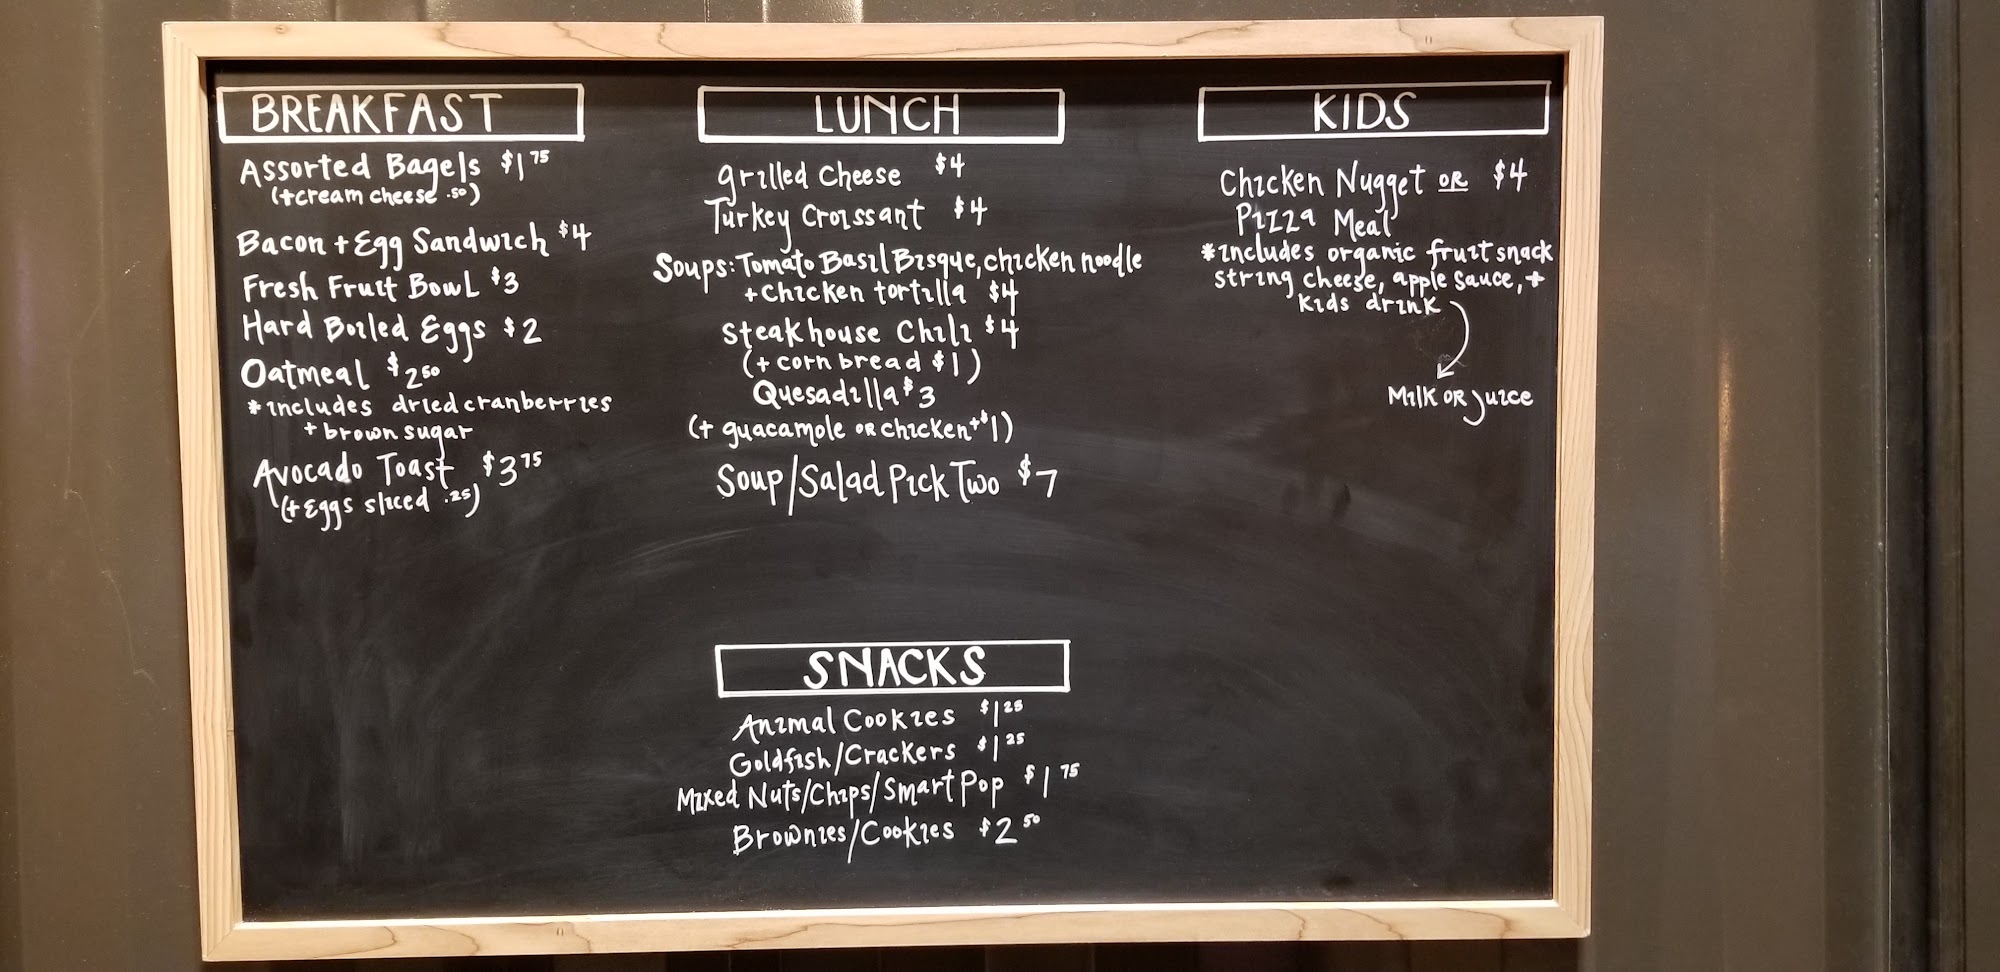 BREAKFAST
Assorted Bagels $1 75
(+cream cheese .50)
Bacon + Egg Sandwich $4
Fresh Fruit Bowl $3
Hard Boiled Eggs $2
Oatmeal $2 50
*includes dried cranberries
+ brown sugar
Avocado Toast $3 75
(+ Eggs sliced .25)
LUNCH
grilled Cheese $4
Turkey Croissant $4
Soups: Tomato Basil Bisque, chicken noodle
+ chicken tortilla $4
Steakhouse Chili $4
(+ corn bread $1)
Quesadilla $3
(+ guacamole OR chicken +$1)
Soup/Salad Pick Two $7
KIDS
Chicken Nugget OR $4
Pizza Meal
*includes organic fruit snack
string cheese, apple sauce, +
kids drink
Milk OR juice
SNACKS
Animal Cookies $1 25
Goldfish/Crackers $1 25
Mixed Nuts/Chips/Smart Pop $1 75
Brownies/Cookies $2 50